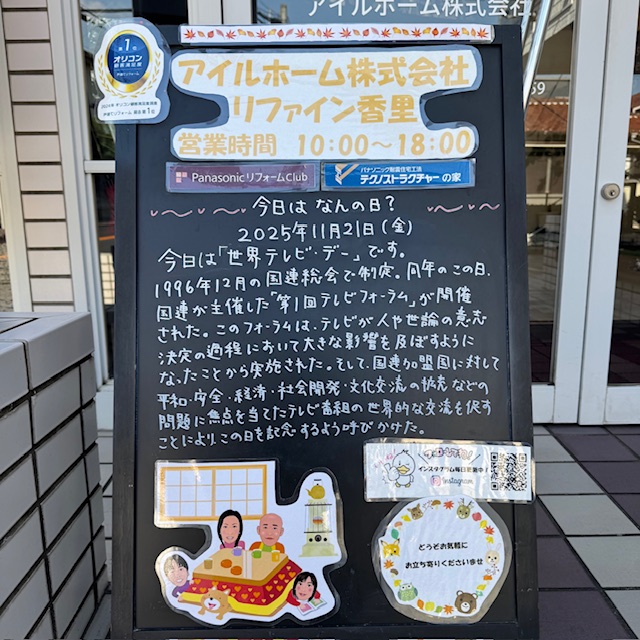 アイルホーム株式会社
第1位
オリコン
顧客満足度
戸建てリフォーム
アイルホーム株式会社
リファイン香里
営業時間 10:00〜18:00
Panasonic リフォーム Club
パナソニック耐震住宅工法
テクノストラクチャーの家
今日はなんの日?
2025年11月21日(金)
今日は「世界テレビ・デー」です。
1996年12月の国連総会で制定。同年のこの日、
国連が主催した「第1回テレビフォーラム」が開催
された。このフォーラムは、テレビが人や世論の意志
決定の過程において大きな影響を及ぼすように
なったことから実施された。そして、国連加盟国に対して
平和・安全・経済・社会開発・文化交流の拡充などの
問題に焦点を当てたテレビ番組の世界的な交流を促す
ことにより、この日を記念するよう呼びかけた。
インスタグラム毎日更新中!
Instagram
どうぞお気軽に
お立ち寄りくださいませ